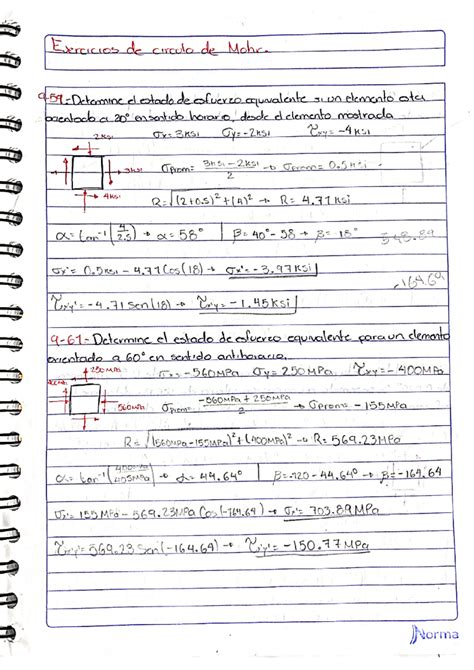 Exercicios de circulo de Mohr.
9-59.- Determine el estado de esfuerzo equivalente si un elemento esta
orientado a 20° en sentido horario, desde el elemento mostrado
2KSI σx=3KSI σy=-2KSI τxy=-4KSI
3KSI σprom= 3KSI-2KSI / 2 → σprom= 0.5KSI
4KSI
R=√(2+0.5)²+(4)² → R= 4.71KSI
α=tan⁻¹(4/2.5) → α=58° | β=40°-58 → β=-18° 543.89
σx'= 0.5KSI-4.77Cos(18) → σx'=-3.97KSI
-164.6
τx'y'=-4.71Sen(18) → τx'y'=-1.45KSi
9-61.- Determine el estado de esfuerzo equivalente para un elemento
orientado a 60° en sentido antihorario.
250MPa σx=-560MPa σy=250MPa τxy=-400MPa
560MPa σprom= -560MPa+250MPa / 2 → σprom=-155MPa
R=√(560MPa-155MPa)²+(400MPa)² → R=569.23MPa
α=tan⁻¹(400MPa/405MPa) → α=44.64° | β=-120-44.64° → β=-164.64
σx'=155MPa-569.23MPa Cos(-164.64) → σx'=703.89MPa
τx'y'=569.23Sen(-164.64) → τx'y'=-150.77MPa
Norma